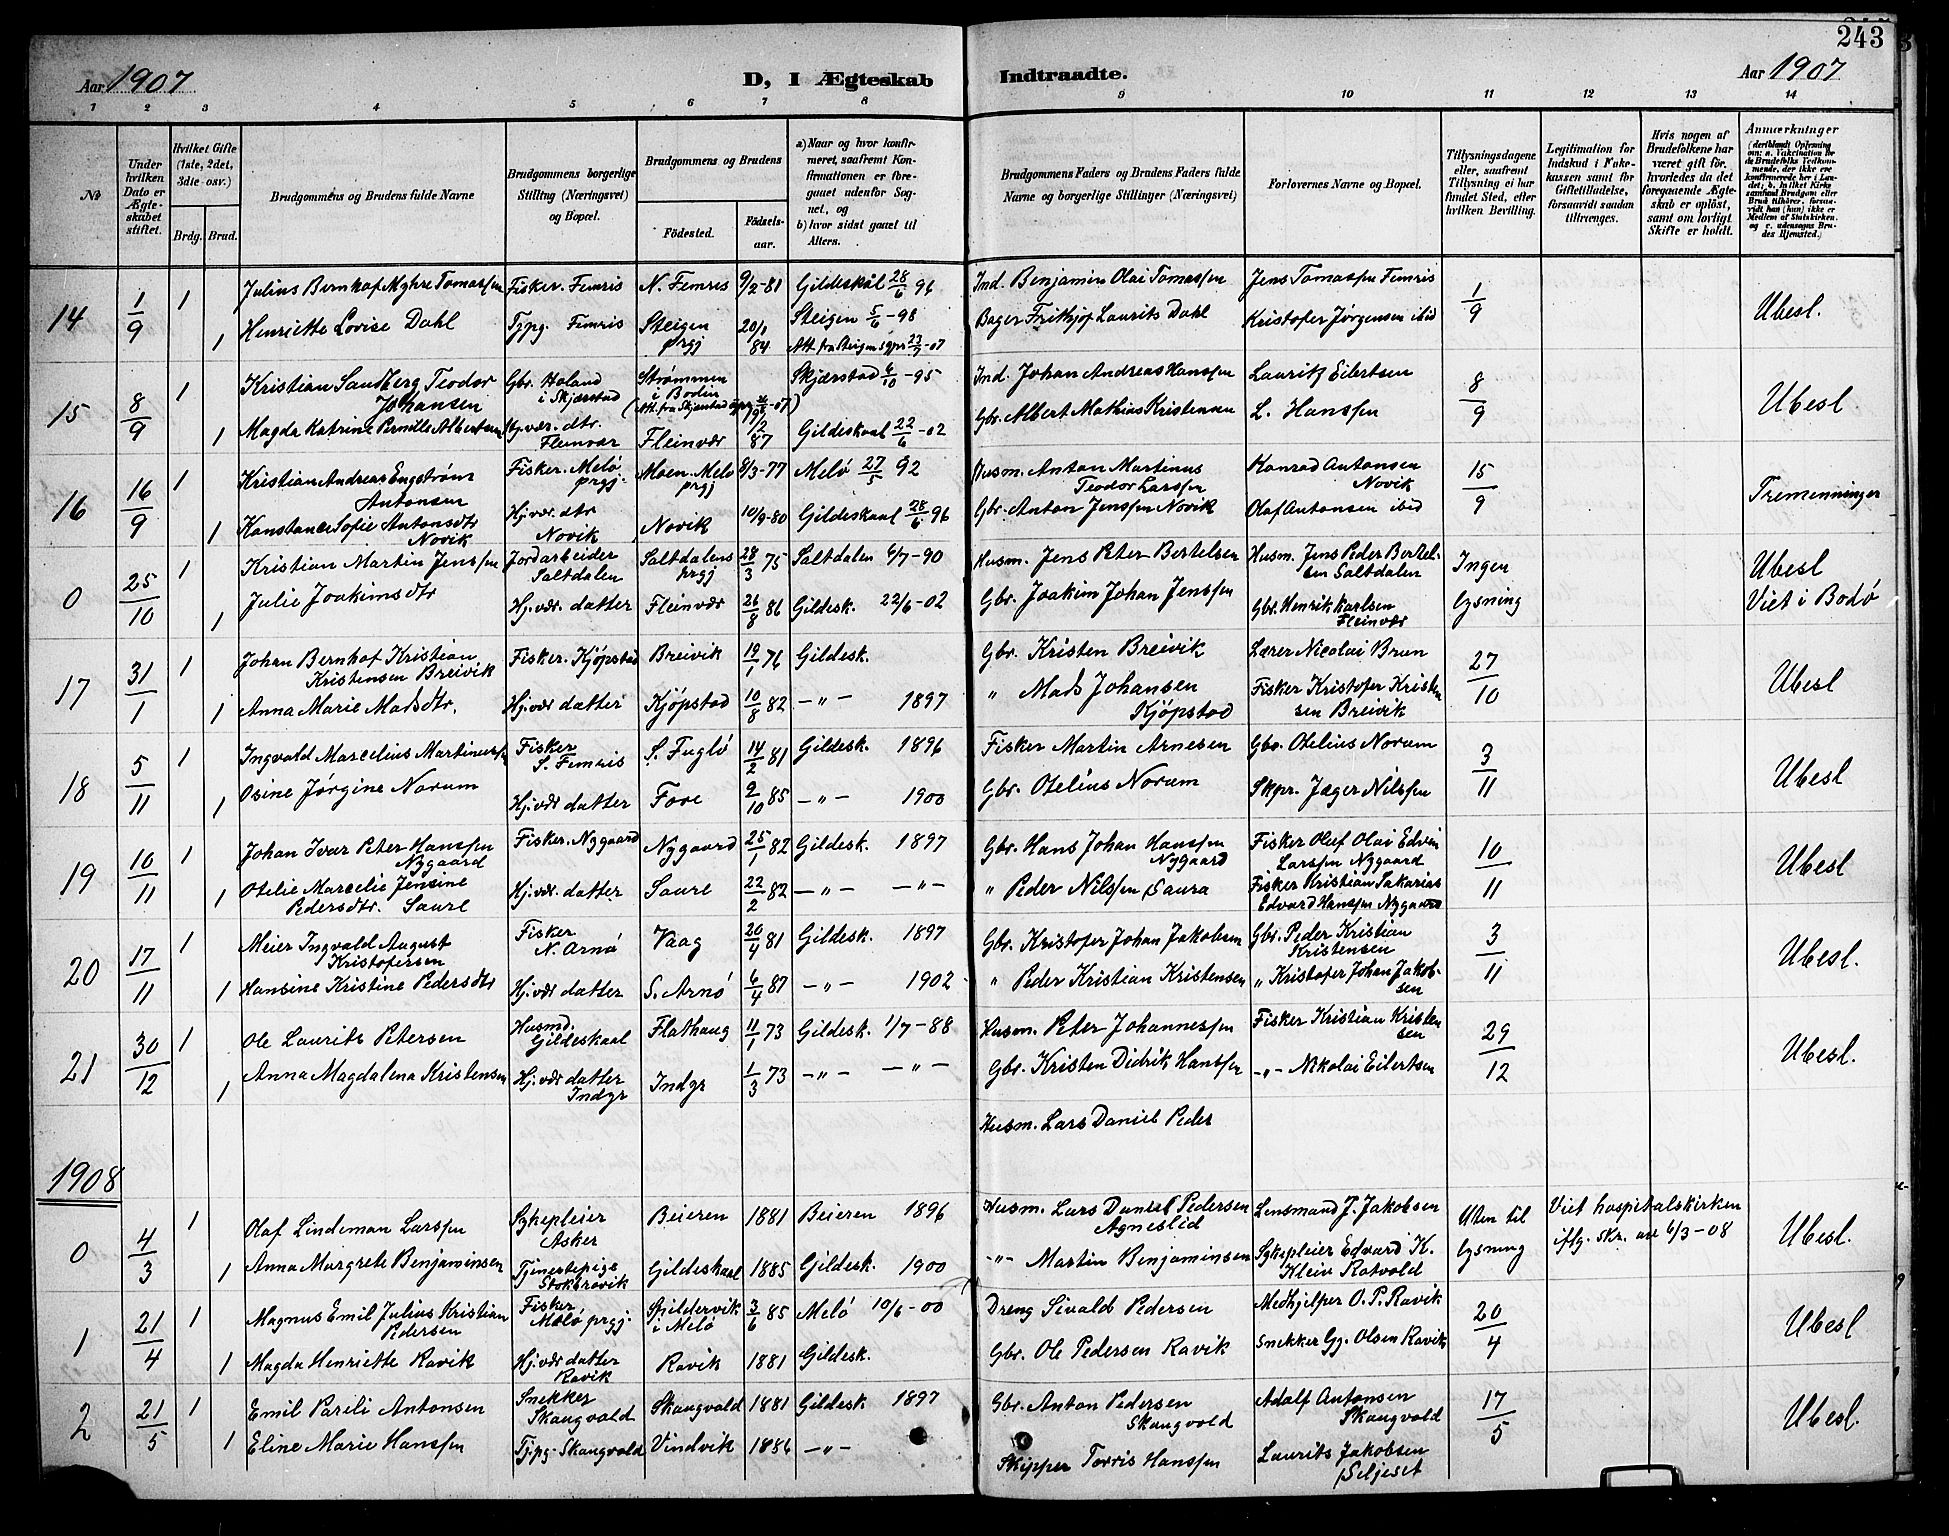 243
Aar 1907 D, I Ægteskab Indtraadte. Aar 1907
1 2 3 4 5 6 7 8 9 10 11 12 13 14
№
Under hvilken Dato er Ægteskabet stiftet.
Hvilket Gifte (1ste, 2det, 3die osv.)
Brdg. Brud.
Brudgommens og Brudens fulde Navne
Brudgommens borgerlige Stilling (Næringsvei) og Bopæl.
Brudgommens og Brudens
Fødested. Fødselsaar.
a) Naar og hvor konfirmeret, saafremt Konfirmationen er foregaaet udenfor Sognet, og
b) hvor sidst gaaet til Alters.
Brudgommens Faders og Brudens Faders fulde Navne og borgerlige Stillinger (Næringsvei)
Forlovernes Navne og Bopæl.
Tillysningsdagene eller, saafremt Tillysning ei har fundet Sted, efter hvilken Bevilling.
Legitimation for Indskud i Enkekassen samt for Giftetilladelse, forsaavidt saadan tiltrænges.
Hvis nogen af Brudefolkene har været gift før, hvorledes da det foregaaende Ægteskab er opløst, samt om lovligt Skifte er holdt.
Anmærkninger (deriblandt Oplysning om: a. Vakcination for de Brudefolks Vedkommende, der ikke ere konfirmerede her i Landet; b. hvilket Kirkesamfund Brudgom eller Brud tilhører, forsaavidt han (hun) ikke er Medlem af Statskirken og c. udensogns Brudes Hjemsted.)
14 1/9 1 Julius Bernhof Myhre Tomassen Fisker. Femris N. Femris 9/2-81 Gildeskål 28/6 96 Ind. Benjamin Olai Tomassen Jens Tomassen Femris 1/9 Ubesl.
1 Henriette Lovise Dahl Tjpg. Femris Steigen prgj 20/1 84 Steigen 5/6-98 Bager Frithjof Laurits Dahl Kristofer Jørgensen ibid
Att. fra Steigen sgpr 23/7-07
15 8/9 1 Kristian Sandberg Teodor Johansen Gbr. Høland i Skjærstad Strømmen i Bodin Skjærstad 6/10-95 Ind. Johan Andreas Hanssen Lauritz Eilertsen 8/9 Ubesl
1 Magda Katrine Pernille Albertsen Hj. vær. dtr. Fleinvær Fleinvær 1/2 87 Gildeskaal 22/6-02 Gbr. Albert Mathias Kristensen L. Hanssen
16 16/9 1 Kristian Andreas Engstrøm Antonsen Fisker. Melø prgj. Moen. Melø prgj 8/3-77 Melø 27/5 92 Husm. Anton Martinus Teodor Larssen Konrad Antonsen Novik 15/9 Tremenninger
1 Konstance Sofie Antonsdtr Novik Hj. vær. dtr Novik Novik 10/9-80 Gildeskaal 28/6 96 Gbr. Anton Jenssen Novik Olaf Antonsen ibid
0 25/10 1 Kristian Martin Jenssen Jordarbeider Saltdalen Saltdalens prgj 28/3 75 Saltdalen 6/7-90 Husm. Jens Peter Bertelsen Husm. Jens Peder Bertelsen Saltdalen Ingen lysning Ubesl Viet i Bodø
1 Julie Joakimsdtr Hj. vær. datter Fleinvær 26/8 86 Gildesk. 22/6-02 Gbr. Joakim Johan Jenssen Gbr. Henrik Karlsen Fleinvær
17 31/1 1 Johan Bernhof Kristian Kristensen Breivik Fisker. Kjøpstad Breivik 19/1 76 Gildesk. Gbr. Kristen Breivik Lærer Nicolai Brun 27/10 Ubesl
1 Anna Marie Madsdtr. Hj. vær datter Kjøpstad 10/8 82 —"— 1897 " Mads Johansen Kjøpstad Fisker Kristofer Kristensen Breivik
18 5/11 1 Ingvald Marcelius Martinussen Fisker S. Femris S. Fuglø 14/2 81 Gildesk. 1896 Fisker Martin Arnesen Gbr. Otelius Norum 3/11 Ubesl
1 Osine Jørgine Norum Hj. vær datter Fore 2/10 85 —"— 1900 Gbr. Otelius Norum Skpr. Jæger Nilssen
19 10/11 1 Johan Ivar Peter Hanssen Nygaard Fisker. Nygaard Nygaard 25/1 82 Gildesk. 1897 Gbr. Hans Johan Hanssen Nygaard Fisker Oluf Olai Edvin Larssen Nygaard 10/11 Ubesl
1 Otelie Marcelie Jensine Pedersdtr. Saure Hj. vær. datter Saure 22/2 82 —"— —"— " Peder Nilssen Saura Fisker Kristian Sakarias Edvard Hanssen Nygaard
20 17/11 1 Meier Ingvald August Kristofersen Fisker N. Arnø Vaag 20/4 81 Gildesk. 1897 Gbr. Kristofer Johan Jakobsen Gbr. Peder Kristian Kristensen 3/11 Ubesl.
1 Hansine Kristine Pedersdtr Hj. vær datter S. Arnø 6/4 87 —"— 1902 " Peder Kristian Kristensen " Kristofer Johan Jakobsen
21 30/12 1 Ole Laurits Petersen Husmd. Gildeskaal Flathaug 11/1 73 Gildesk. 1/7-88 Husm. Peter Johannessen Fisker Kristian Kristensen 29/12 Ubesl.
1 Anna Magdalena Kristensen Hj. vær datter Indgr Indgr 1/3 73 —"— —"— Gbr. Kristen Didrik Hanssen —"— Nikolai Eilertsen
Husm. Lars Daniel Peder
1908
0 4/3 1 Olaf Lindeman Larssen Sykepleier Asker Beieren 1881 Beieren 1896 Husm. Lars Daniel Pedersen Agneslid Lensmand J. Jakobsen Uten til lysning Viet hospitalskirken iflg. skr. av 6/3-08 Ubesl.
1 Anna Margrete Benjaminsen Tjenestepige Gildeskaal 1885 Gildesk. 1900 —"— Martin Benjaminsen Sykepleier Edvard K. Kleiv Rotvold
1 21/4 1 Magnus Emil Julius Kristian Pedersen Fisker Melø prgj. Spildervik i Melø 3/6 85 Melø 10/6-00 Dreng Sivald Pedersen Medhjelper O. P. Ravik 20/4 Ubesl
1 Magda Henriette Ravik Hj. vær datter Ravik Ravik 1881 Gildesk. Gbr. Ole Pedersen Ravik Snekker Gg. Olsen Ravik
2 21/5 1 Emil Pareli Antonsen Snekker Skaugvold Skaugvold 1881 Gildesk. 1897 Gbr. Anton Pedersen Skaugvold Adolf Antonsen Skaugvold 17/5 Ubesl.
1 Eline Marie Hanssen Tjpg. Skaugvold Vindvik 1886 —"— Skipper Torris Hanssen Laurits Jakobsen Seljeset